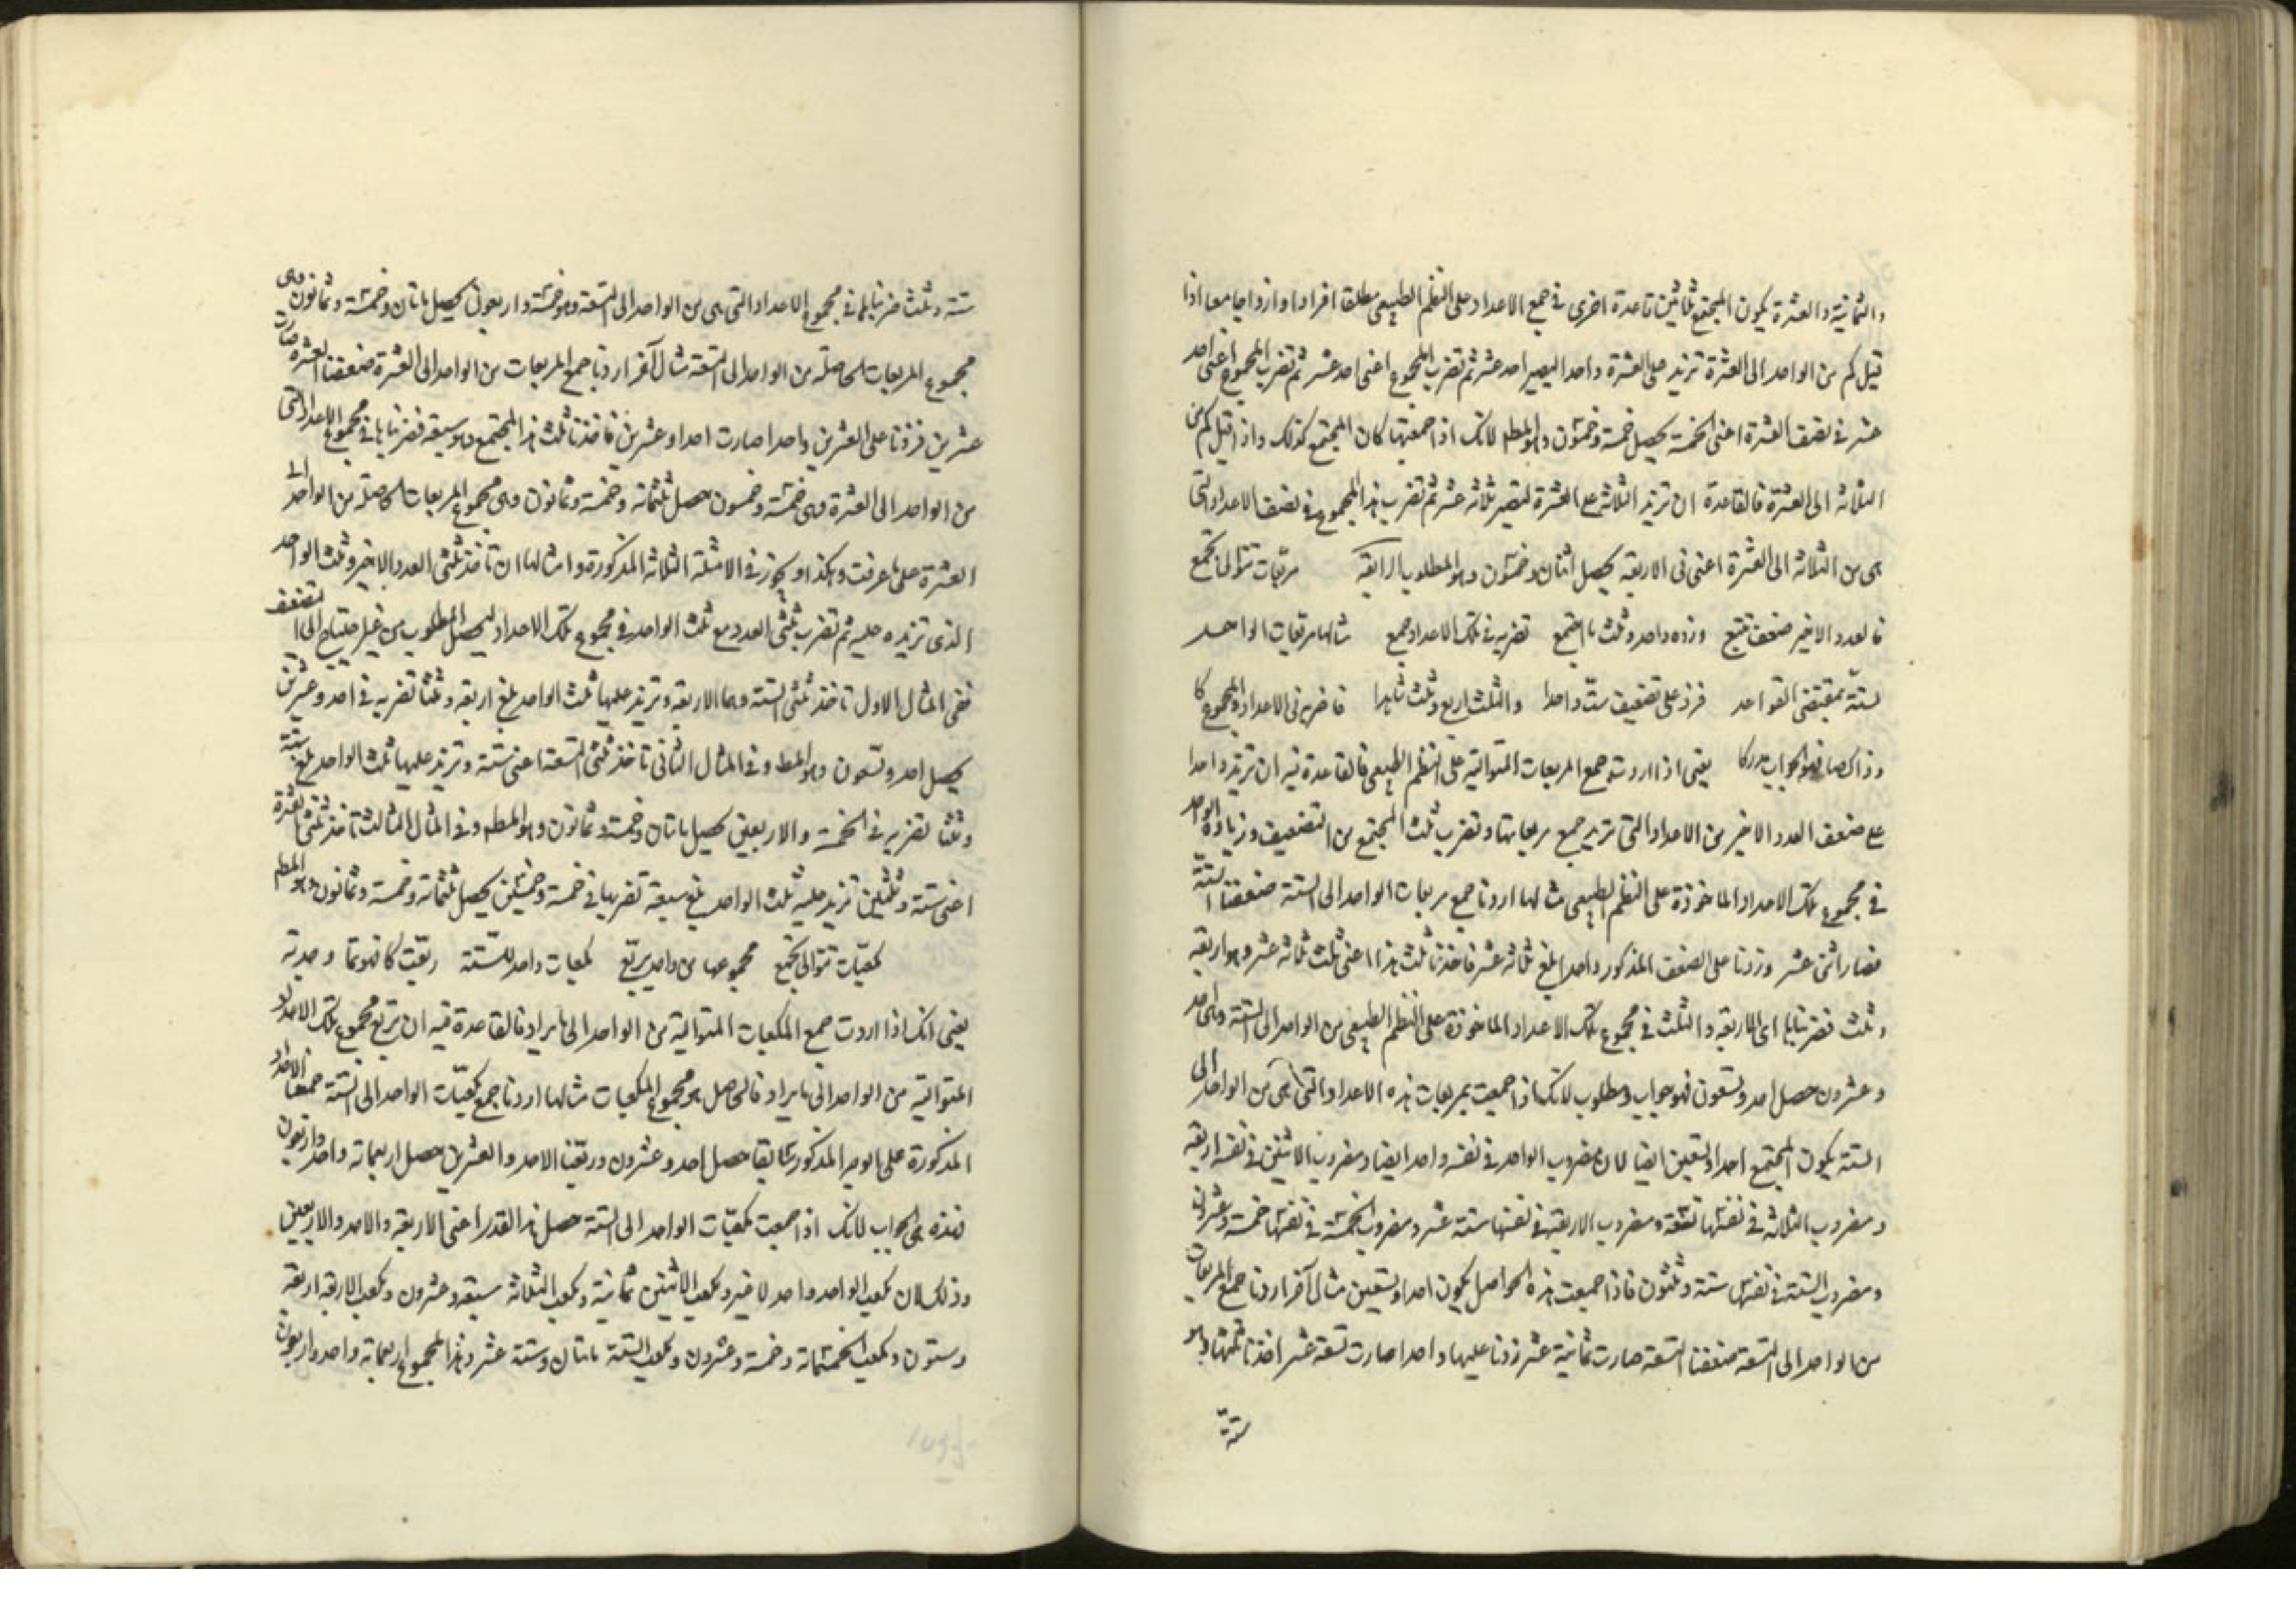 والثمانية والعشرة يكون المجتمع ثلاثين قاعدة اخرى في جمع الاعداد على النظم الطبيعي مطلقا افرادا وازواجا معا اذا
قيل كم من الواحد الى العشرة تزيد على العشرة واحدا ليصير احد عشر ثم تضرب المجموع اعنى احد
عشر في نصف العشرة اعنى الخمسة يحصل خمسة وخمسون وهو المط لانك اذا جمعتها كان المجتمع كذلك واذا قيل كم من
الثلاثة الى العشرة فالقاعدة ان تزيد الثلاثة على العشرة لتصير ثلاثة عشر ثم تضرب هذا المجموع في نصف الاعداد التي
هي من الثلاثة الى العشرة اعنى في الاربعة يحصل اثنان وخمسون وهو المطلوب الرابعة مربعات تتوالى تجمع
فالعدد الاخير ضعف تتبع وزده واحد وثلث ما اجتمع تضربه في تلك الاعداد جمع مثالها مربعات الواحد
لستة بمقتضى القواعد فزد على تضعيف ست واحدا والثلث اربع وثلث شاهدا فاضربه في الاعداد والمجموع كا
وذاك صا فهو الجواب مدركا يعنى اذا اردت جمع المربعات المتوالية على النظم الطبيعي فالقاعدة فيه ان تزيد واحدا
على ضعف العدد الاخير من الاعداد التي تريد جمع مربعاتها وتضرب ثلث المجتمع من التضعيف وزيادة الواحد
في مجموع تلك الاعداد الماخوذة على النظم الطبيعي مثالها اردنا جمع مربعات الواحد الى الستة ضعفنا الستة
فصار اثنى عشر وزدنا على الضعف المذكور واحدا بلغ ثلاثة عشر فاخذنا ثلث هذا اعنى ثلث ثلاثة عشر وهو اربعة
وثلث فضربناها اى الاربعة والثلث في مجموع تلك الاعداد الماخوذة على النظم الطبيعي من الواحد الى الستة وهى احد
وعشرون حصل احد وتسعون فهو جواب ومطلوب لانك اذا جمعت مربعات هذه الاعداد التي هى من الواحد الى
الستة يكون المجتمع احدا وتسعين ايضا لان مضروب الواحد في نفسه واحد ايضا ومضروب الاثنين في نفسه اربعة
ومضروب الثلاثة في نفسها تسعة ومضروب الاربعة في نفسها ستة عشر ومضروب الخمسة في نفسها خمسة وعشرين
ومضروب الستة في نفسها ستة وثلثون فاذا جمعت هذه الحواصل يكون احدا وتسعين مثال آخر اردنا جمع المربعات
من الواحد الى التسعة ضعفنا التسعة صارت ثمانية عشر زدنا عليها واحدا صارت تسعة عشر اخذنا ثلثها وهو
ستة
ستة وثلث ضربناها في مجموع الاعداد التي هي من الواحد الى التسعة وهو خمسة واربعون يحصل ماتان وخمسة وثمانون وهى
مجموع المربعات الحاصلة من الواحد الى التسعة مثال آخر اردنا جمع المربعات من الواحد الى العشرة ضعفنا العشرة صارت
عشرين فزدنا على العشرين واحدا صارت احدا وعشرين فاخذنا ثلث هذا المجتمع وهو سبعة فضربناها في مجموع الاعداد التي
من الواحد الى العشرة وهى خمسة وخمسون حصل ثلثمائة وخمسة وثمانون وهى مجموع المربعات الحاصلة من الواحد الى
العشرة على ما عرفت وهكذا ويجوز في الامثلة الثلاثة المذكورة وامثالها ان تاخذ ثلثى العدد الاخير وثلث الواحد
الذى تزيده عليه ثم تضرب ثلثى العدد مع ثلث الواحد في مجموع تلك الاعداد ليحصل المطلوب من غير احتياج الى التضعيف
ففي المثال الاول تاخذ ثلثى الستة وهما الاربعة وتزيد عليها ثلث الواحد بلغ اربعة وثلثا تضربه في احد وعشرين
يحصل احد وتسعون وهو المط وفي المثال الثانى تاخذ ثلثى التسعة اعنى ستة وتزيد عليها ثلث الواحد بلغ ستة
وثلثا تضربه في الخمسة والاربعين يحصل ماتان وخمسة وثمانون وهو المط وفي المثال الثالث تاخذ ثلثى العشرة
اعنى ستة وثلثين تزيد عليه ثلث الواحد بلغ سبعة تضربها في خمسة وخمسين يحصل ثلثمائة وخمسة وثمانون وهو المط
كمعبات تتوالى تجمع مجموعها من واحد يربع كمعبات واحد للستة ربعت كا فهو تما وحدته
يعنى انك اذا اردت جمع المكعبات المتوالية من الواحد الى ما يراد فالقاعدة فيه ان تربع مجموع تلك الاعداد
المتوالية من الواحد الى ما يراد فالحاصل هو مجموع المكعبات مثالها اردنا جمع كمعبات الواحد الى الستة جمعنا الاعداد
المذكورة على الوجه المذكور سابقا حصل احد وعشرون وربعنا الاحد والعشرين حصل اربعمائة واحد واربعون
فهذه هى الجواب لانك اذا جمعت كمعبات الواحد الى الستة حصل هذا القدر اعنى الاربعة والاحد والاربعين
وذلك لان كمعب الواحد واحد لا غير وكمعب الاثنين ثمانية وكمعب الثلاثة سبعة وعشرون وكمعب الاربعة اربعة
وستون وكمعب الخمسة مائة وخمسة وعشرون وكمعب الستة ماتان وستة عشر وهذا المجموع اربعمائة واحد واربعون